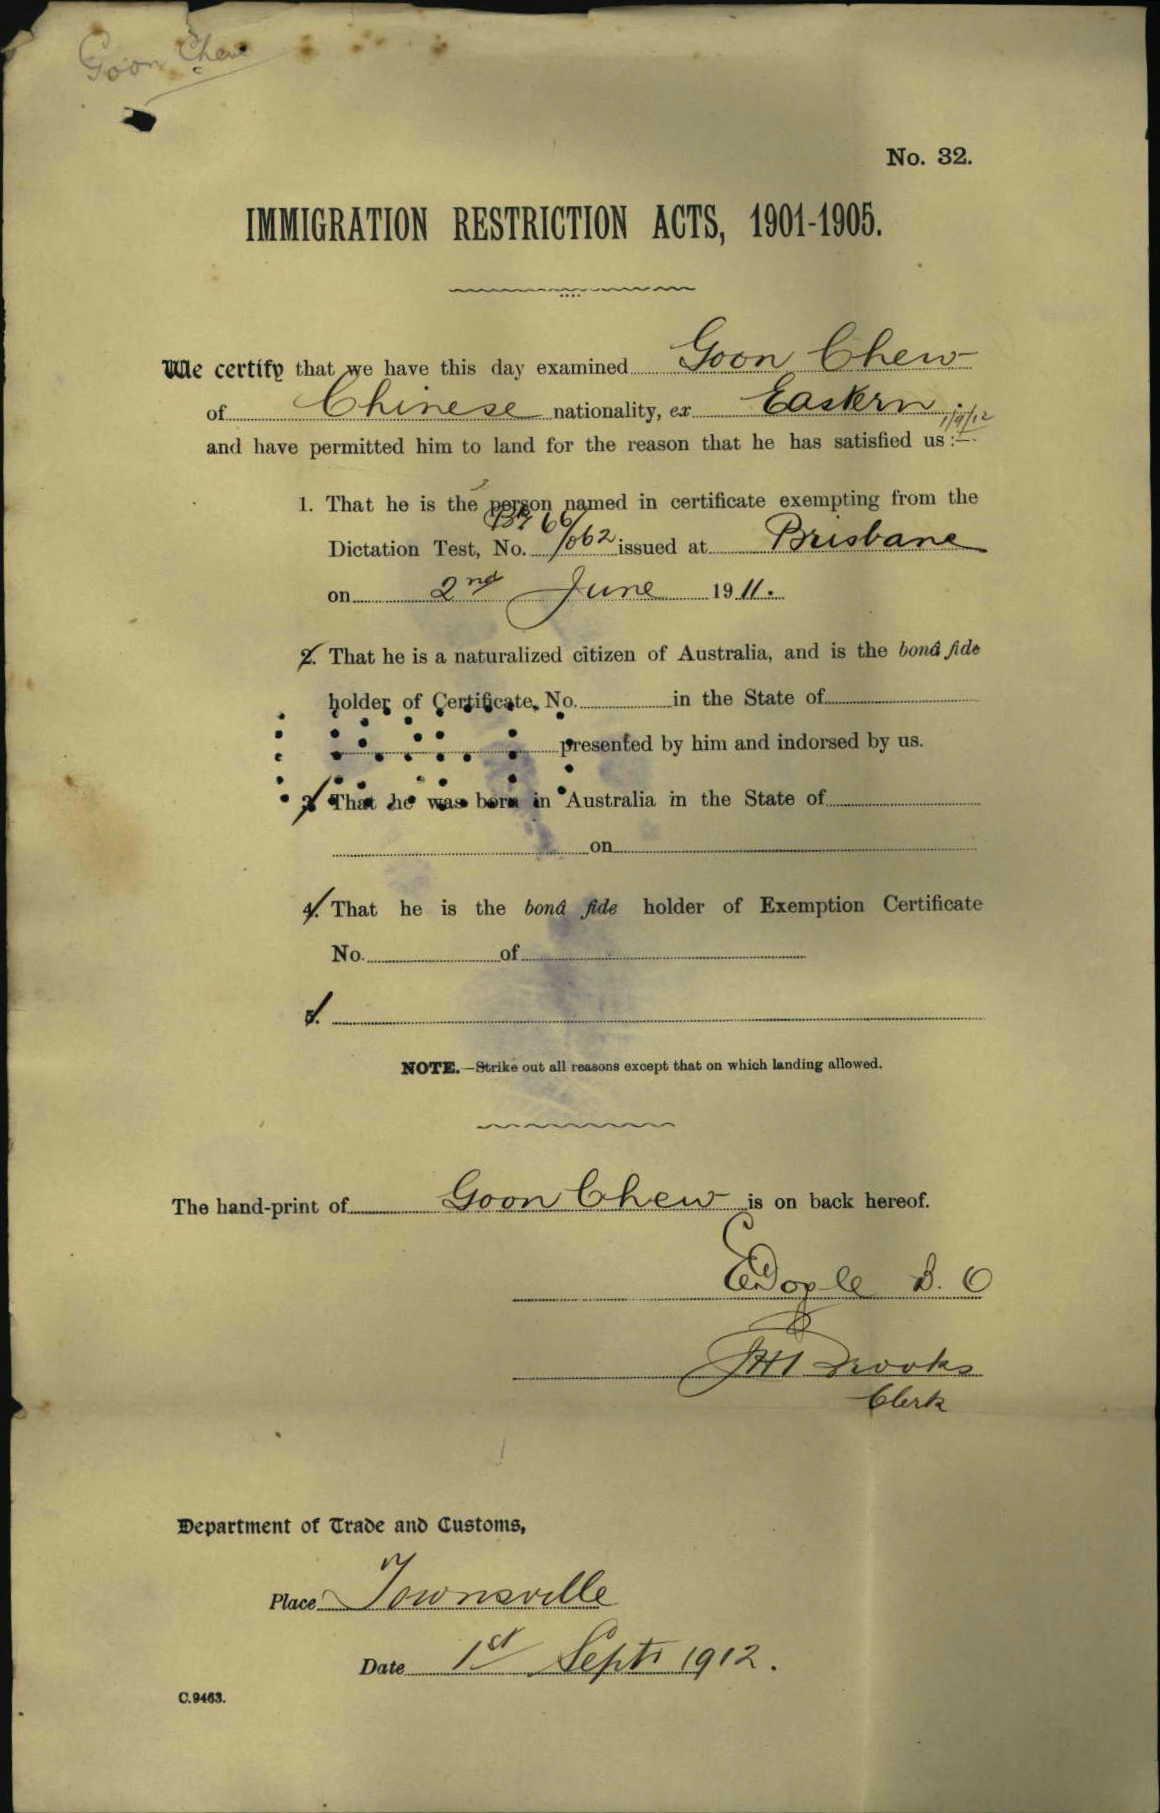 Goon Chew
No. 32.
IMMIGRATION RESTRICTION ACTS, 1901-1905.
We certify that we have this day examined Goon Chew
of Chinese nationality, ex Eastern. 1/9/12
and have permitted him to land for the reason that he has satisfied us :—
1. That he is the person named in certificate exempting from the
Dictation Test, No. 66/062 issued at Brisbane
on 2nd June 1911.
2. That he is a naturalized citizen of Australia, and is the bonâ fide
holder of Certificate, No. in the State of
presented by him and indorsed by us.
3. That he was born in Australia in the State of
on
4. That he is the bonâ fide holder of Exemption Certificate
No. of
5.
NOTE.—Strike out all reasons except that on which landing allowed.
The hand-print of Goon Chew is on back hereof.
B. O
Brooks
Clerk
Department of Trade and Customs,
Place Townsville
Date 1st Sept 1912.
C.9463.